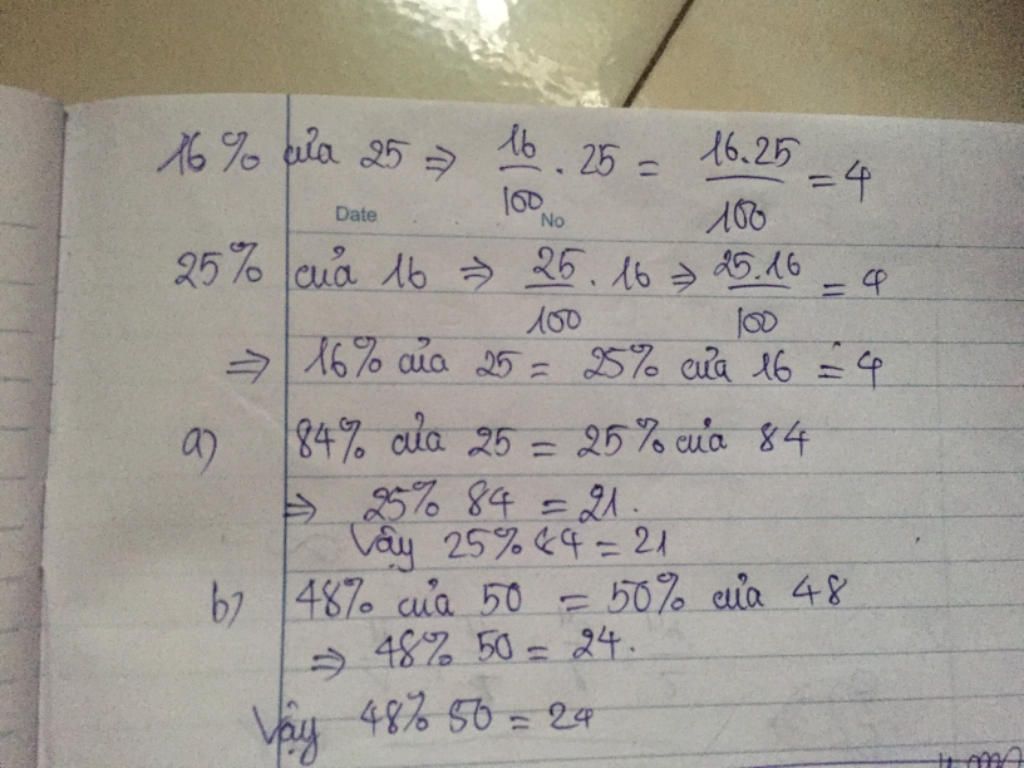 16% của 25 ⇒ 16/100 . 25 = 16.25/100 = 4
Date No
25% của 16 ⇒ 25/100 . 16 ⇒ 25.16/100 = 4
⇒ 16% của 25 = 25% của 16 = 4
a) 84% của 25 = 25% của 84
⇒ 25% 84 = 21.
Vậy 25% 84 = 21
b) 48% của 50 = 50% của 48
⇒ 48% 50 = 24.
Vậy 48% 50 = 24